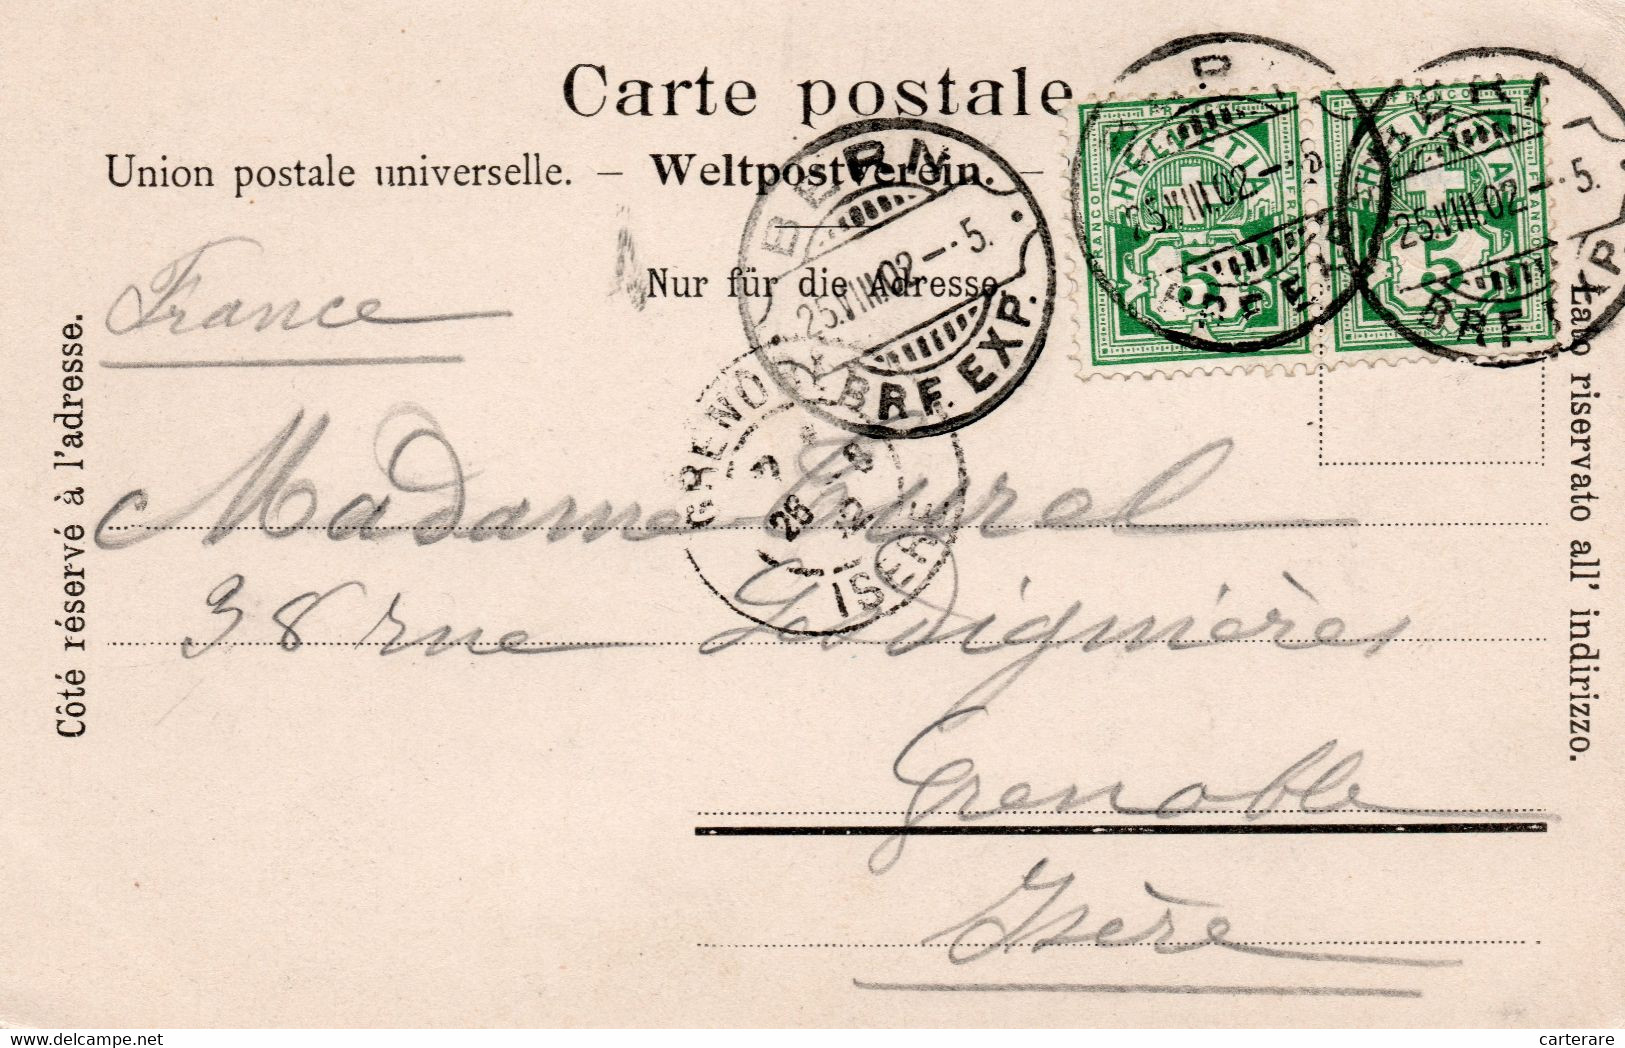 Carte postale
Union postale universelle. — Weltpostverein. —
Nur für die Adresse
Côté réservé à l'adresse.
Lato riservato all' indirizzo.
BERN
25.VIII.02–·5.
BRF. EXP.
FRANCO
HELVETIA
5
FRANCO
25.VIII.02–·5
BRF. EXP.
FRANCO
HELVETIA
5
FRANCO
25.VIII.02–·5.
BRF. EXP.
GRENOBLE
26
ISERE
France
Madame
38 rue Lesdiguières
Grenoble
Isère
www.delcampe.net
carterare